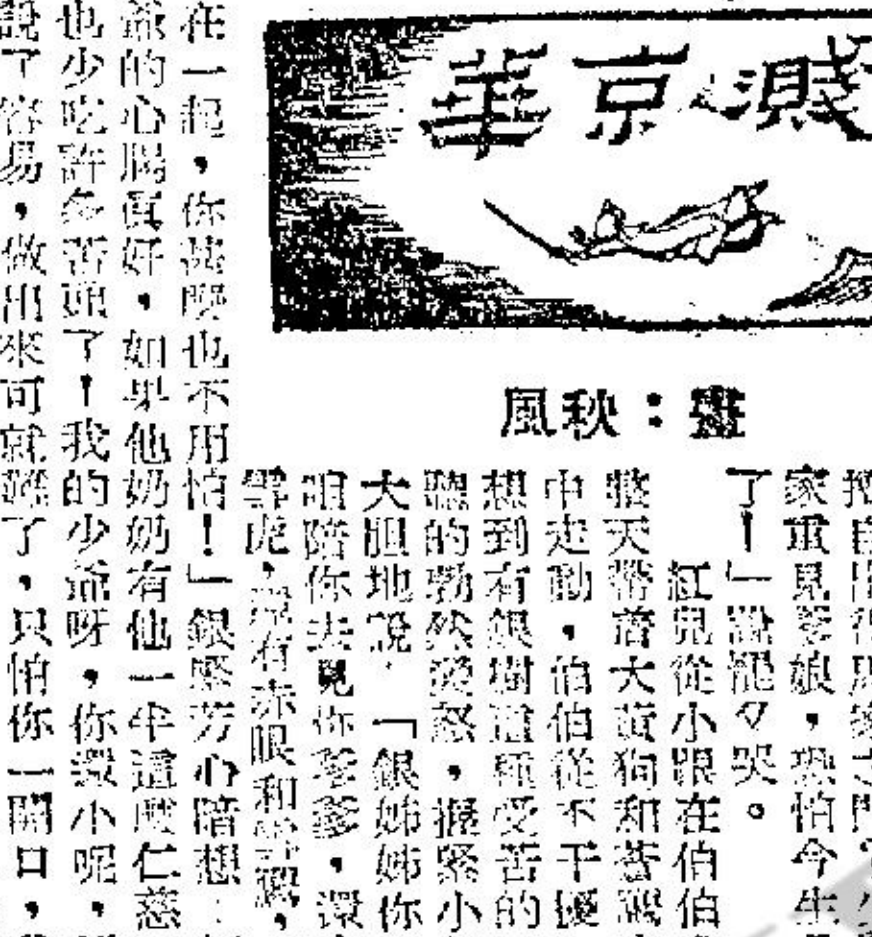 濺京華
畫：秋風
自出得家之門
家重見爹娘，恐怕今生
了！」說罷又哭。
紅兒從小跟在伯伯
整天帶着大黃狗和蒼鷹
中走動，伯伯從不干擾
想到有銀樹這種受苦的
聽的勃然發怒，握緊小
大胆地說：「銀姊姊你
咱陪你去見你爹爹，還
雪虎，還有赤眼和雪鷹，
在一起，你甚麼也不用怕！」銀芳心暗想：
爺的心腸真好，如果他奶奶有他一半這麼仁慈
也少吃許多苦頭了！我的少爺呀，你還小呢，
說了容易，做出來可就難了，只怕你一開口，